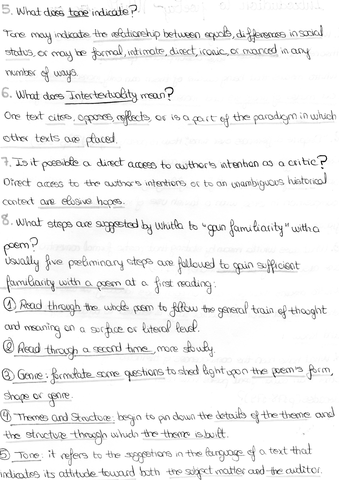 5. What does tone indicate?
Tone may indicate the relationship between equals, differences in social
status, or may be formal, intimate, direct, ironic, or nuanced in any
number of ways.
6. What does Intertextuality mean?
One text cites, opposes, reflects, or is a part of the paradigm in which
other texts are placed.
7. Is it possible a direct access to author's intention as a critic?
Direct access to the author's intentions or to an unambiguous historical
context are elusive hopes.
8. What steps are suggested by Whitla to "gain familiarity" with a
poem?
Usually five preliminary steps are followed to gain sufficient
familiarity with a poem at a first reading:
① Read through the whole poem to follow the general train of thought
and meaning on a surface or literal level.
② Read through a second time, more slowly.
③ Genre: formulate some questions to shed light upon the poem's form,
shape or genre.
④ Themes and Structure: begin to pin down the details of the theme and
the structure through which the theme is built.
5) Tone: it refers to the suggestions in the language of a text that
indicates its attitude toward both the subject matter and the auditor.